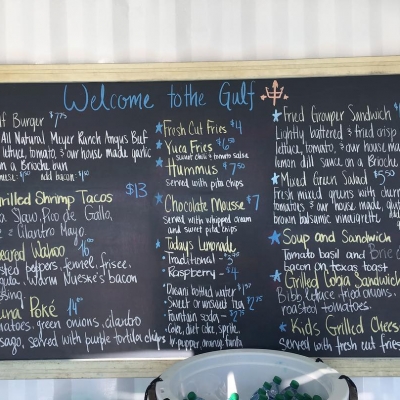 Welcome to the Gulf
Burger $7.75
All Natural Meyer Ranch Angus Beef
lettuce, tomato, & our house made garlic
on a Brioche bun
add bacon
Grilled Shrimp Tacos $13
Slaw, Pico de Gallo,
& Cilantro Mayo
Seared Wahoo
peppers, fennel, frisee,
Warm Nueske's bacon
Poke 14
tomatoes, green onions, cilantro
served with purple tortilla chips
Fresh Cut Fries $4
Yuca Fries
sweet chili & tomato salsa
Hummus $7
served with pita chips
Chocolate Mousse $7
served with whipped cream
and sweet pita chips
Today's Lemonade
Traditional
Raspberry
bottled water
Sweet or unsweet tea
fountain soda
Coke, diet coke, sprite,
dr pepper, orange fanta
Fried Grouper Sandwich
Lightly battered & fried crisp
lettuce, tomato, & our house made
lemon dill sauce on a Brioche
Mixed Green Salad
Fresh mixed greens with cherry
tomatoes & our house made,
brown balsamic vinaigrette
Soup and Sandwich
Tomato basil and Brie
bacon on texas toast
Grilled Sandwich
Bibb lettuce, fried onions,
roasted tomatoes
Kids Grilled Cheese
served with fresh cut fries